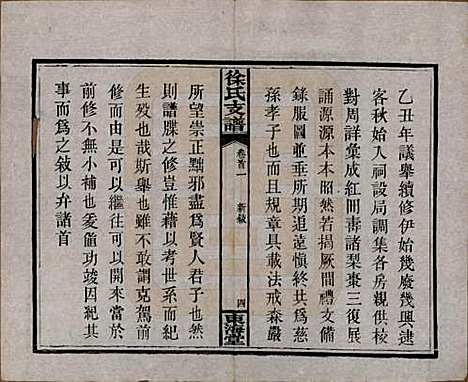 乙丑年議舉續修伊始幾廢幾興逮
客秋始入祠設局調集各房親供校
對周詳彙成紅冊壽諸梨棗三復展
誦源源本本昭然若揭厥間禮文備
錄服圖並垂所期追遠愼終共爲慈
孫孝子也而且規章具載法戒森嚴
徐氏支譜
卷首一
新敘
四
東海堂
所望崇正黜邪盡爲賢人君子也然
則譜牒之修豈惟藉以考世系而紀
生歿也哉斯舉也雖不敢謂克駕前
修而由是可以繼往可以開來當於
前修不無小補也爰値功竣因紀其
事而爲之敘以弁諸首